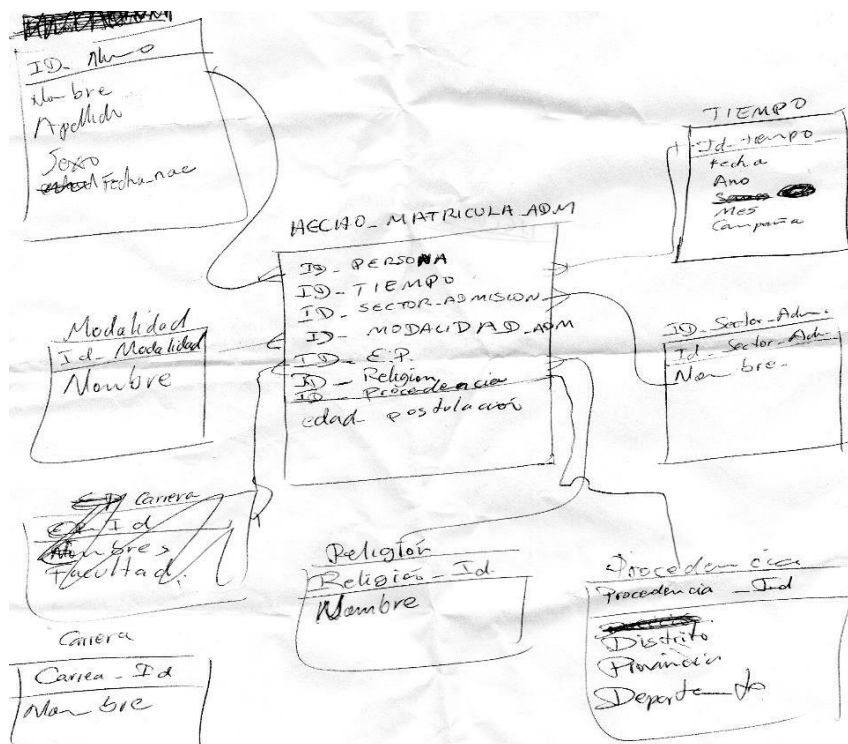 ID_ Alumno
Nombre
Apellido
Sexo
Fecha_nac
TIEMPO
Id_tiempo
Fecha
Ano
Mes
Campaña
HECHO_MATRICULA_ADM
ID_PERSONA
ID_TIEMPO
ID_SECTOR_ADMISION
ID_MODALIDAD_ADM
ID_E.P.
ID_Religion
ID_Procedencia
edad_postulación
Modalidad
Id_Modalidad
Nombre
ID_Sector_Adm.
Id_Sector_Adm.
Nombre
Carrera
Id
Nombres
Facultad.
Carrera
Carrea_Id
Nombre
Religión
Religión_Id.
Nombre
Procedencia
Procedencia_Id
Distrito
Provincia
Departamento